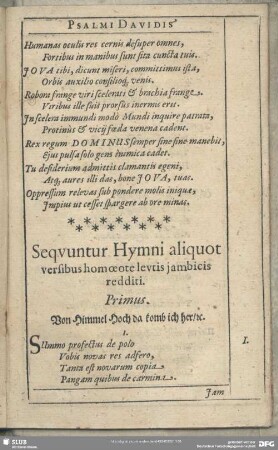 PSALMI DAVIDIS
Humanas oculis res cernis desuper omnes,
Fortibus in manibus sunt sita cuncta tuis.
JOVA tibi, dicunt miseri, committimus ista,
Orbis auxilio consilioq; venis.
Robora frange viri scelerati & brachia frange.
Viribus ille suis prorsus inermis eres.
In scelera immundi modò Mundi inquire patrata,
Protinùs & vicij fœda venena cadent.
Rex regum DOMINUS semper sine fine manebit,
Ejus pulsa solo gens inimica cadet.
Tu desiderium admittis clamantis egeni,
Atq; aures illi das, bone JOVA, tuas.
Oppressum relevas sub pondere molis iniquæ,
Impius ut cesset spargere ab ore minas.
Seqvuntur Hymni aliquot
versibus homœoteleutis jambicis
redditi.
Primus.
Von Himmel Hoch da komb ich her/ꝛc.
1.
Summo profectus de polo
Vobis novas res adfero,
Tanta est novarum copia
Pangam quibus de carmina.
I.
Jam
SLUB
DFG